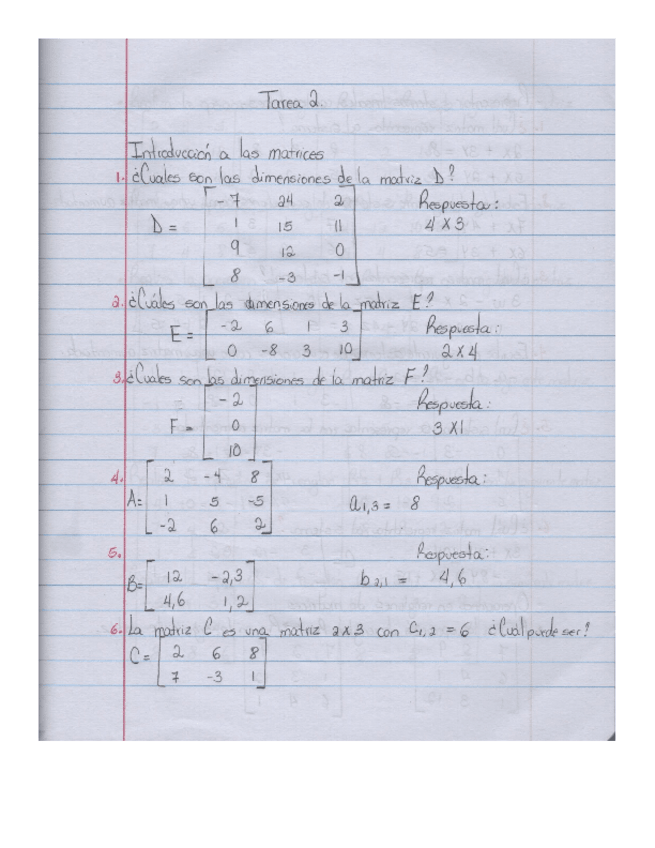 Tarea 2.
Introducción a las matrices
1. ¿Cuales son las dimensiones de la matriz D?
Respuesta:
D = [ -7 24 2
1 15 11
9 12 0
8 -3 -1 ]
4 X 3
2. ¿Cuáles son las dimensiones de la matriz E?
E = [ -2 6 1 3
0 -8 3 10 ]
Respuesta:
2 x 4
3. ¿Cuales son las dimensiones de la matriz F?
F = [ -2
0
10 ]
Respuesta:
3 X1
4.
A= [ 2 -4 8
1 5 -5
-2 6 2 ]
Respuesta:
a1,3 = 8
5.
B= [ 12 -2,3
4,6 1,2 ]
Respuesta:
b2,1 = 4,6
6. La matriz C es una matriz 2x3 con C1,2 = 6 ¿Cuál puede ser?
C = [ 2 6 8
7 -3 1 ]